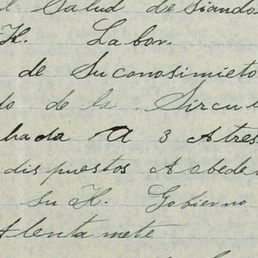 Salud desiando
H. Labor.
de Su conosimieto
do de la Sircu
hada A 3 A tres
dispuestos A obede
su H. Gobierno
Atentamete